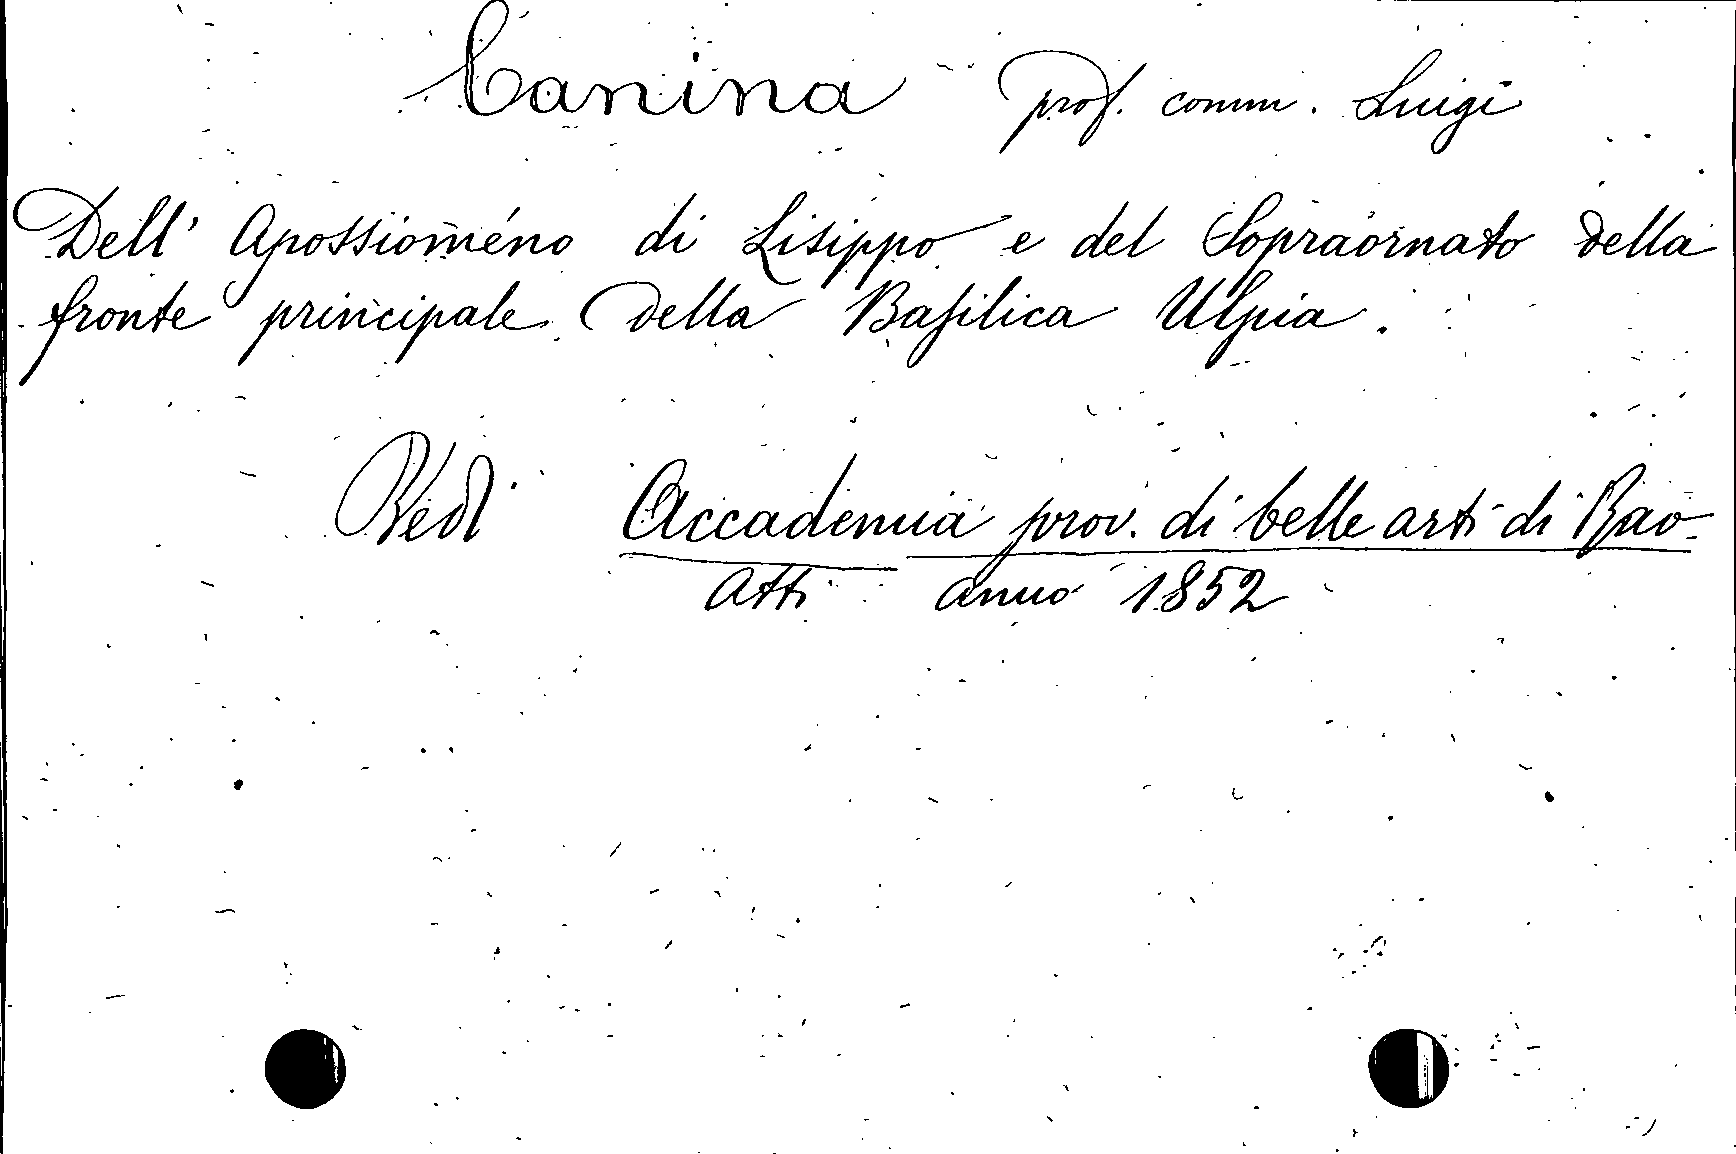 Canina prof. comm. Luigi
Dell' Apossioméno di Lisippo e del Sopraornato della
fronte principale della Basilica Ulpia.
Vedi Accademia prov. di belle arti di Rav.
Atti anno 1852